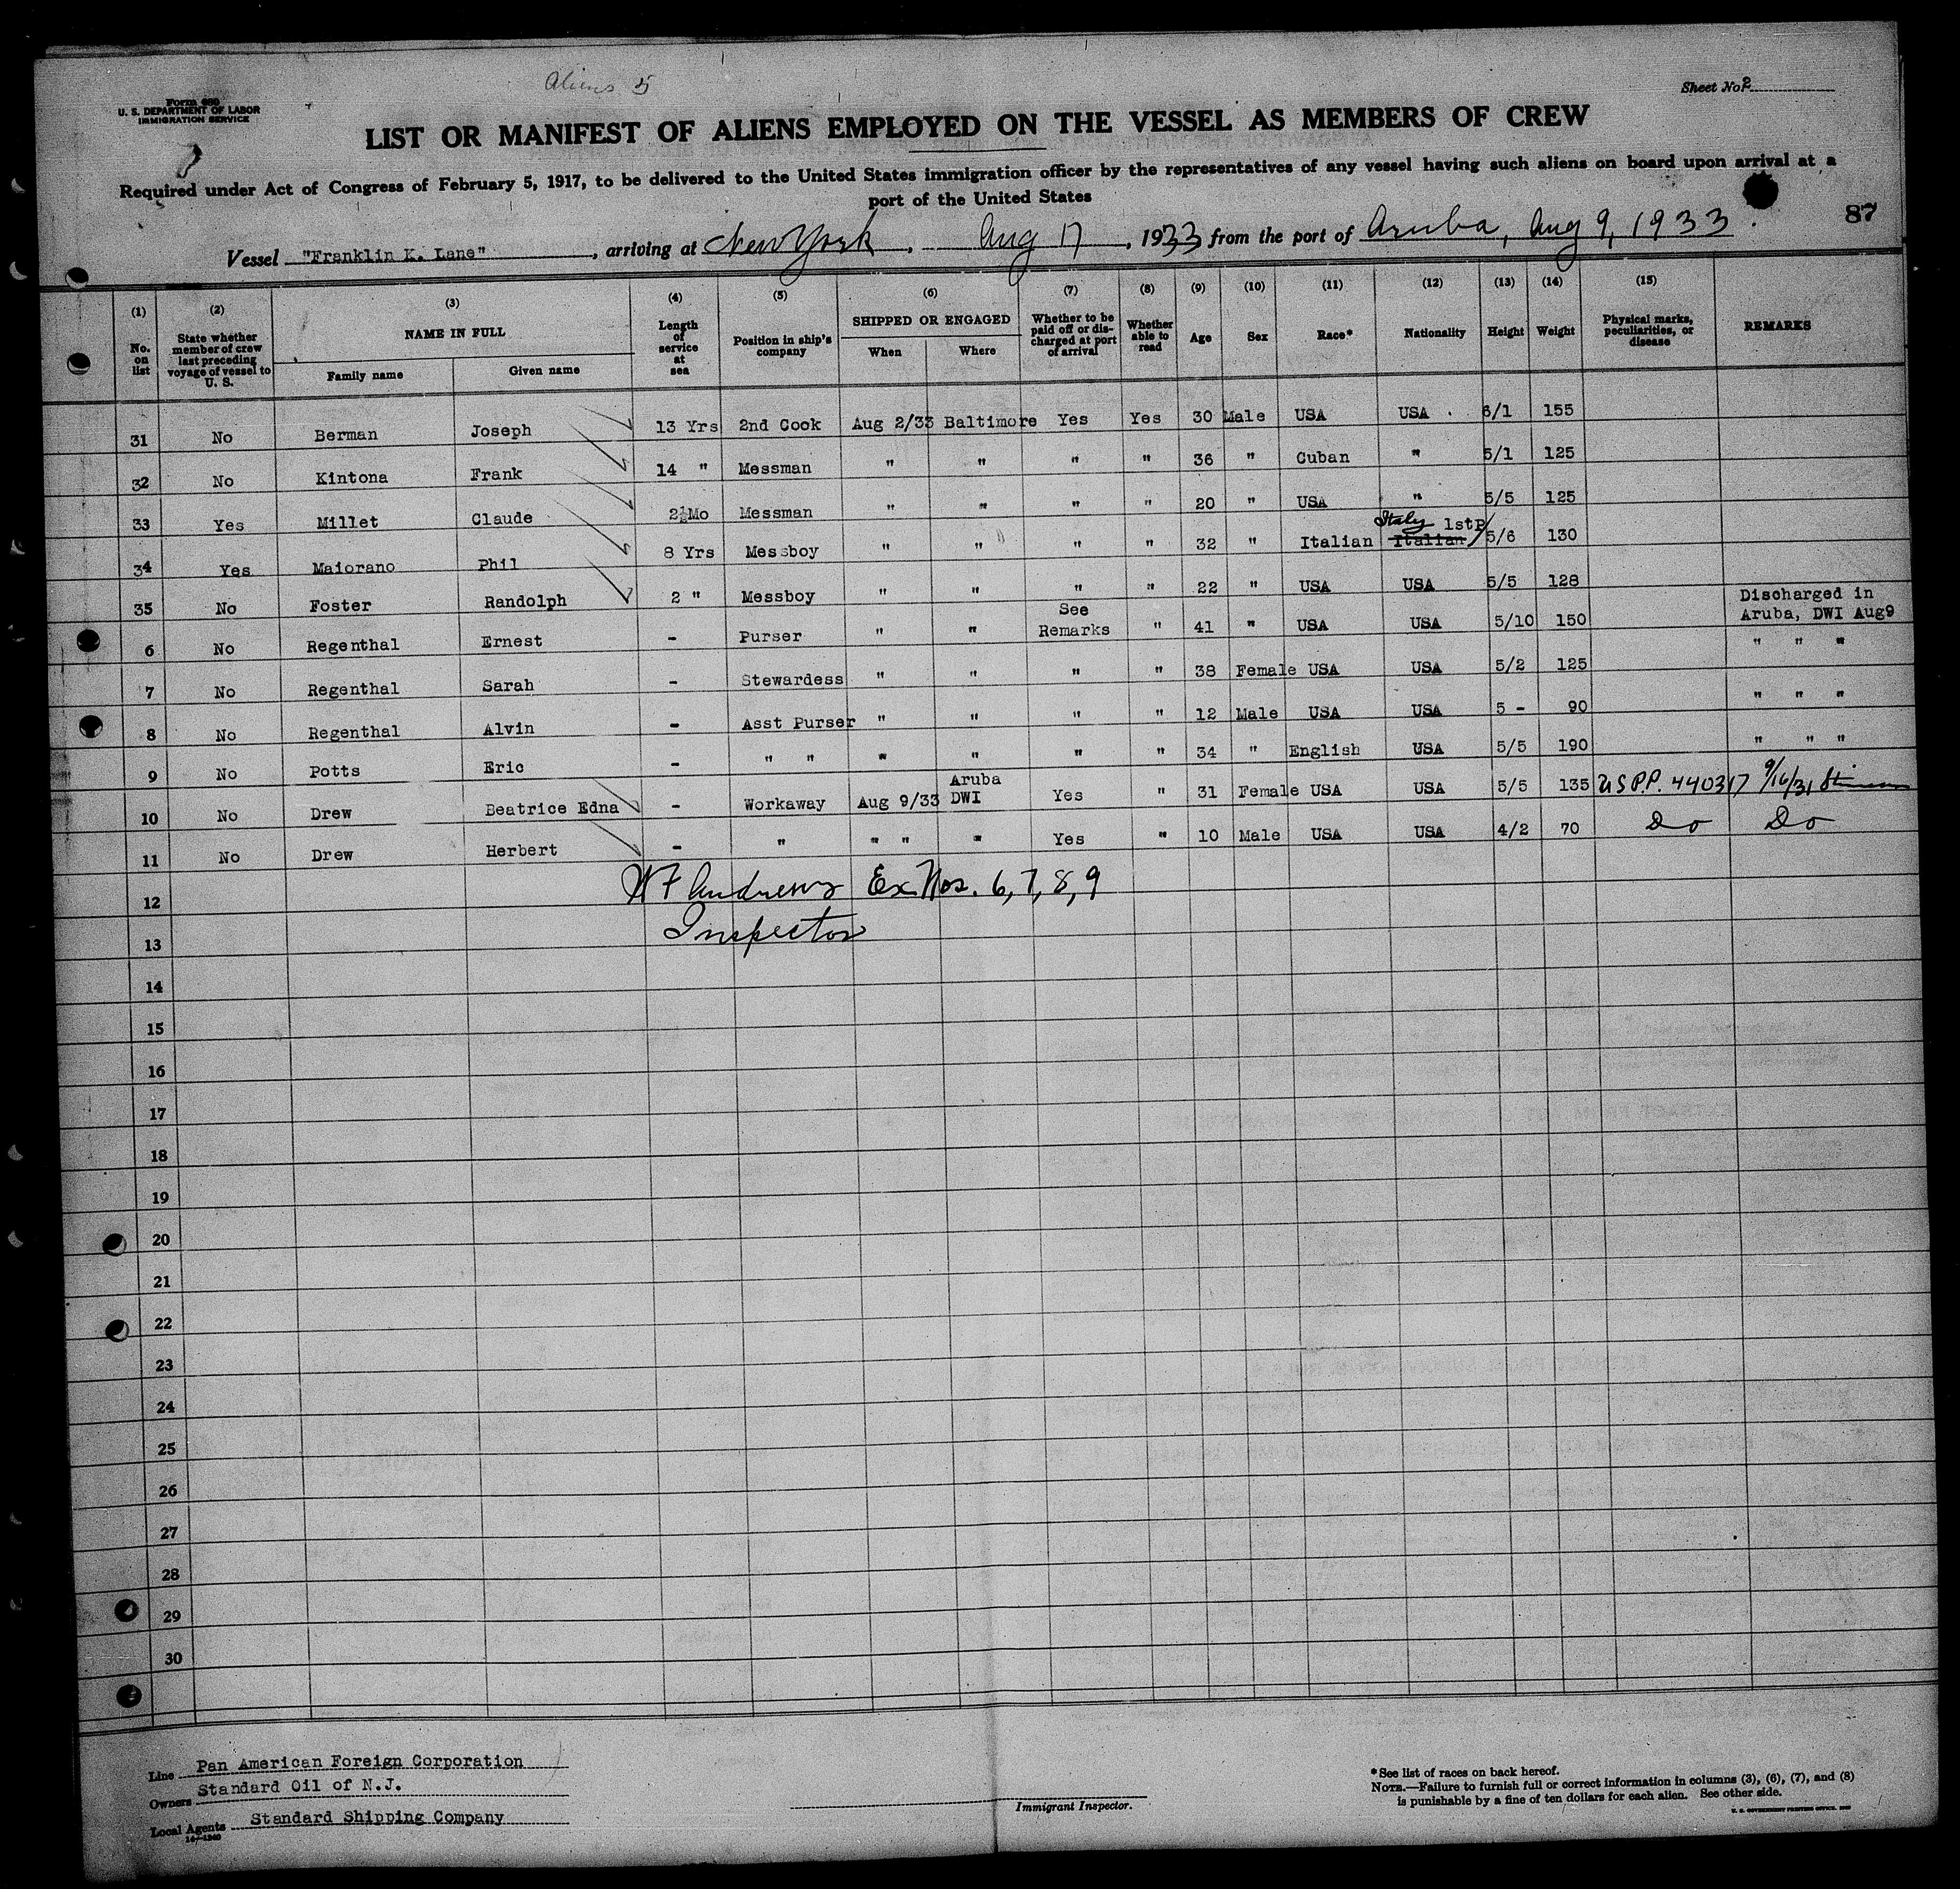 Aliens 5
Form 680
U. S. DEPARTMENT OF LABOR
IMMIGRATION SERVICE
Sheet No. 2
LIST OR MANIFEST OF ALIENS EMPLOYED ON THE VESSEL AS MEMBERS OF CREW
Required under Act of Congress of February 5, 1917, to be delivered to the United States immigration officer by the representatives of any vessel having such aliens on board upon arrival at a
port of the United States
87
Vessel "Franklin K. Lane", arriving at New York, Aug 17, 1933 from the port of Aruba, Aug 9, 1933.
(1) (2) (3) (4) (5) (6) (7) (8) (9) (10) (11) (12) (13) (14) (15)
No. on list | State whether member of crew last preceding voyage of vessel to U. S. | NAME IN FULL Family name Given name | Length of service at sea | Position in ship's company | SHIPPED OR ENGAGED When Where | Whether to be paid off or discharged at port of arrival | Whether able to read | Age | Sex | Race* | Nationality | Height | Weight | Physical marks, peculiarities, or disease | REMARKS
31 No Berman Joseph 13 Yrs 2nd Cook Aug 2/33 Baltimore Yes Yes 30 Male USA USA 6/1 155
32 No Kintona Frank 14 " Messman " " " " 36 " Cuban " 5/1 125
33 Yes Millet Claude 2½Mo Messman " " " " 20 " USA " 5/5 125
Italy 1stP
34 Yes Maiorano Phil 8 Yrs Messboy " " " " 32 " Italian Italian 5/6 130
35 No Foster Randolph 2 " Messboy " " " " 22 " USA USA 5/5 128
See Discharged in
6 No Regenthal Ernest - Purser " " Remarks " 41 " USA USA 5/10 150 Aruba, DWI Aug9
7 No Regenthal Sarah - Stewardess " " " " 38 Female USA USA 5/2 125 " " "
8 No Regenthal Alvin - Asst Purser " " " " 12 Male USA USA 5 - 90 " " "
9 No Potts Eric - " " " " " " 34 " English USA 5/5 190 " " "
Aruba
10 No Drew Beatrice Edna - Workaway Aug 9/33 DWI Yes " 31 Female USA USA 5/5 135 U S P.P. 440317 9/16/31
11 No Drew Herbert - " " " " Yes " 10 Male USA USA 4/2 70 Do Do
12 W F Andrews Ex Nos. 6, 7, 8, 9
13 Inspector
14
15
16
17
18
19
20
21
22
23
24
25
26
27
28
29
30
Line Pan American Foreign Corporation
Owners Standard Oil of N.J.
Local Agents Standard Shipping Company
14—1240
Immigrant Inspector.
*See list of races on back hereof.
NOTE.—Failure to furnish full or correct information in columns (3), (6), (7), and (8)
is punishable by a fine of ten dollars for each alien. See other side.